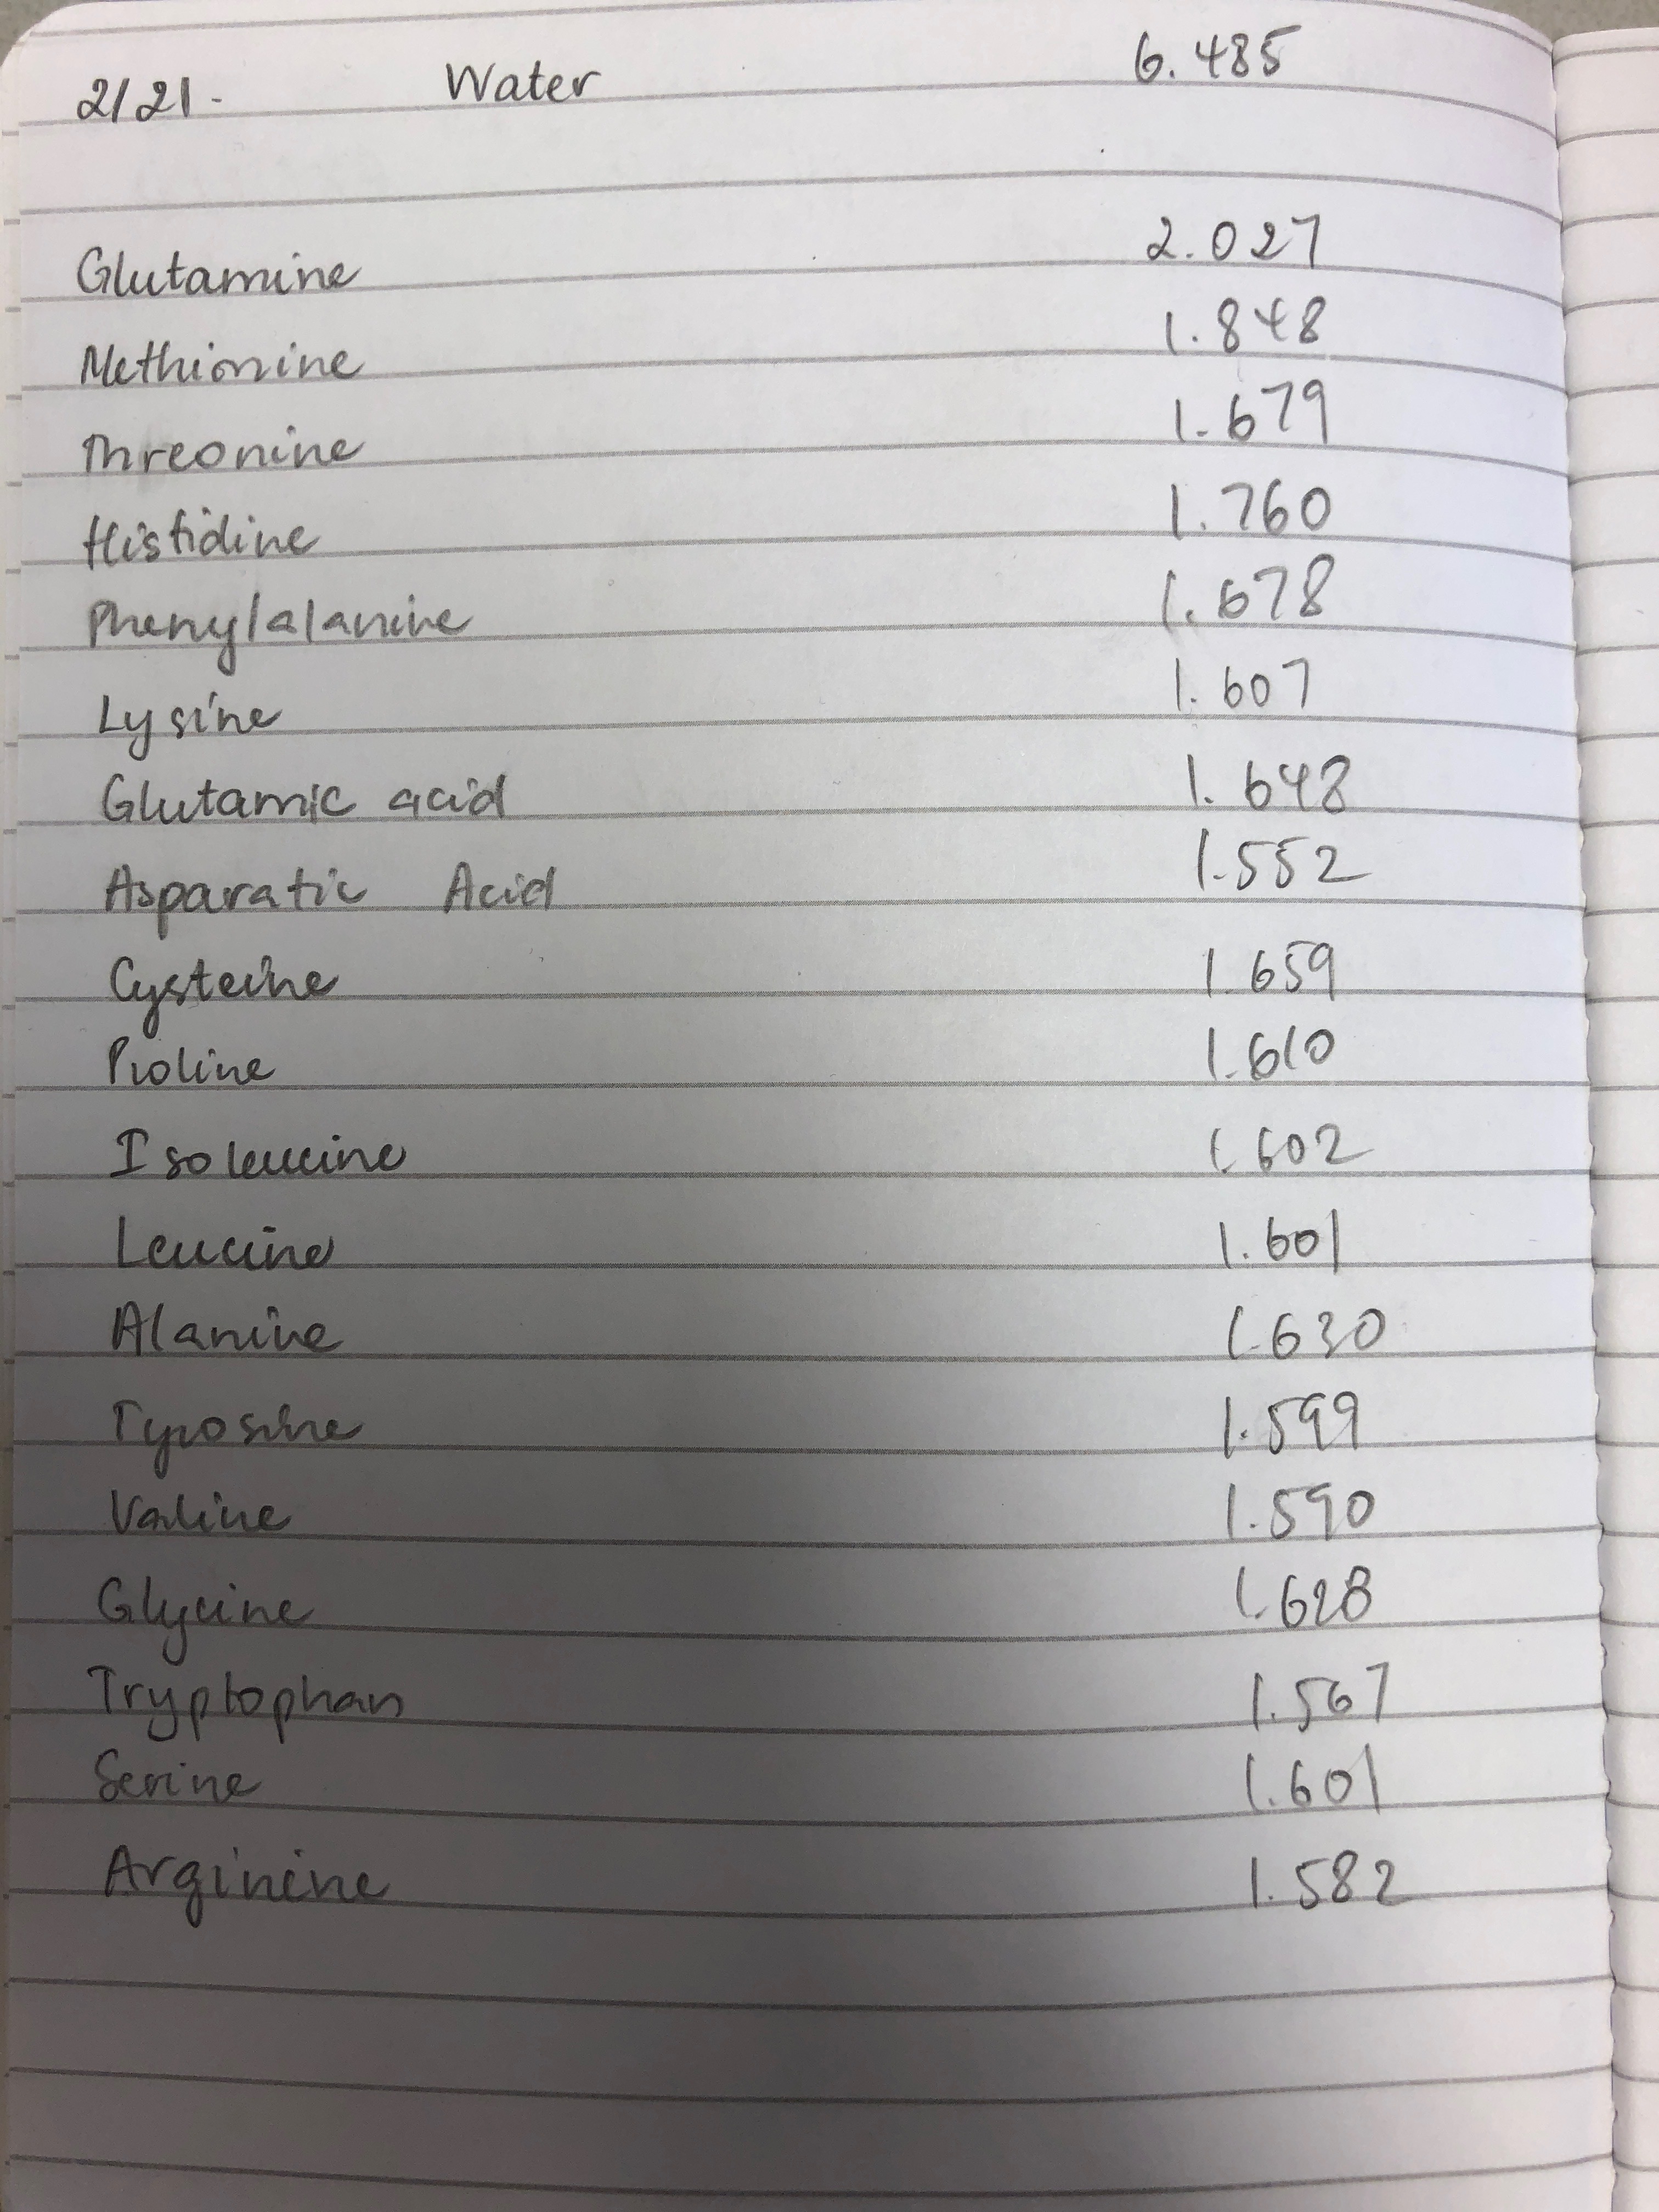 2/21. Water 6.485
Glutamine 2.027
Methionine 1.848
Threonine 1.679
Histidine 1.760
Phenylalanine 1.678
Lysine 1.607
Glutamic acid 1.648
Asparatic Acid 1.552
Cysteine 1.659
Proline 1.610
Isoleucine 1.602
Leucine 1.601
Alanine 1.630
Tyrosine 1.599
Valine 1.590
Glycine 1.628
Tryptophan 1.567
Serine 1.601
Arginine 1.582